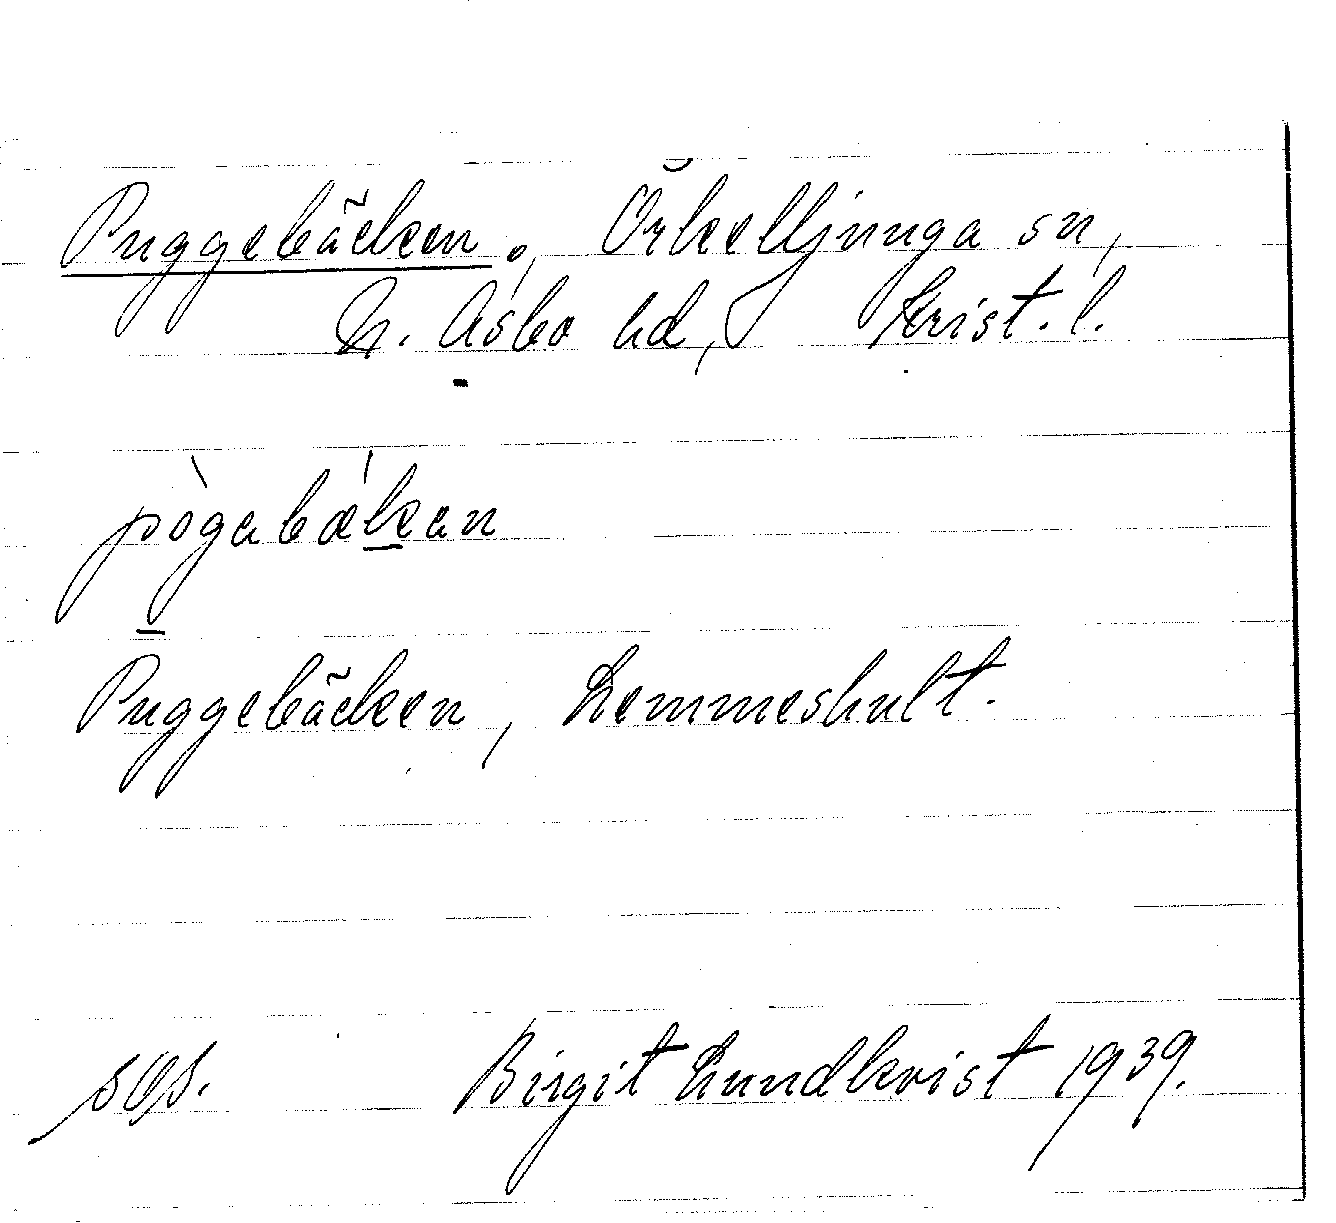 Puggebäcken, Örkelljunga sn,
N. Åsbo hd, Krist. l.
pògabǽkan
Puggebäcken, Lemmeshult.
Birgit Lundkvist 1939.